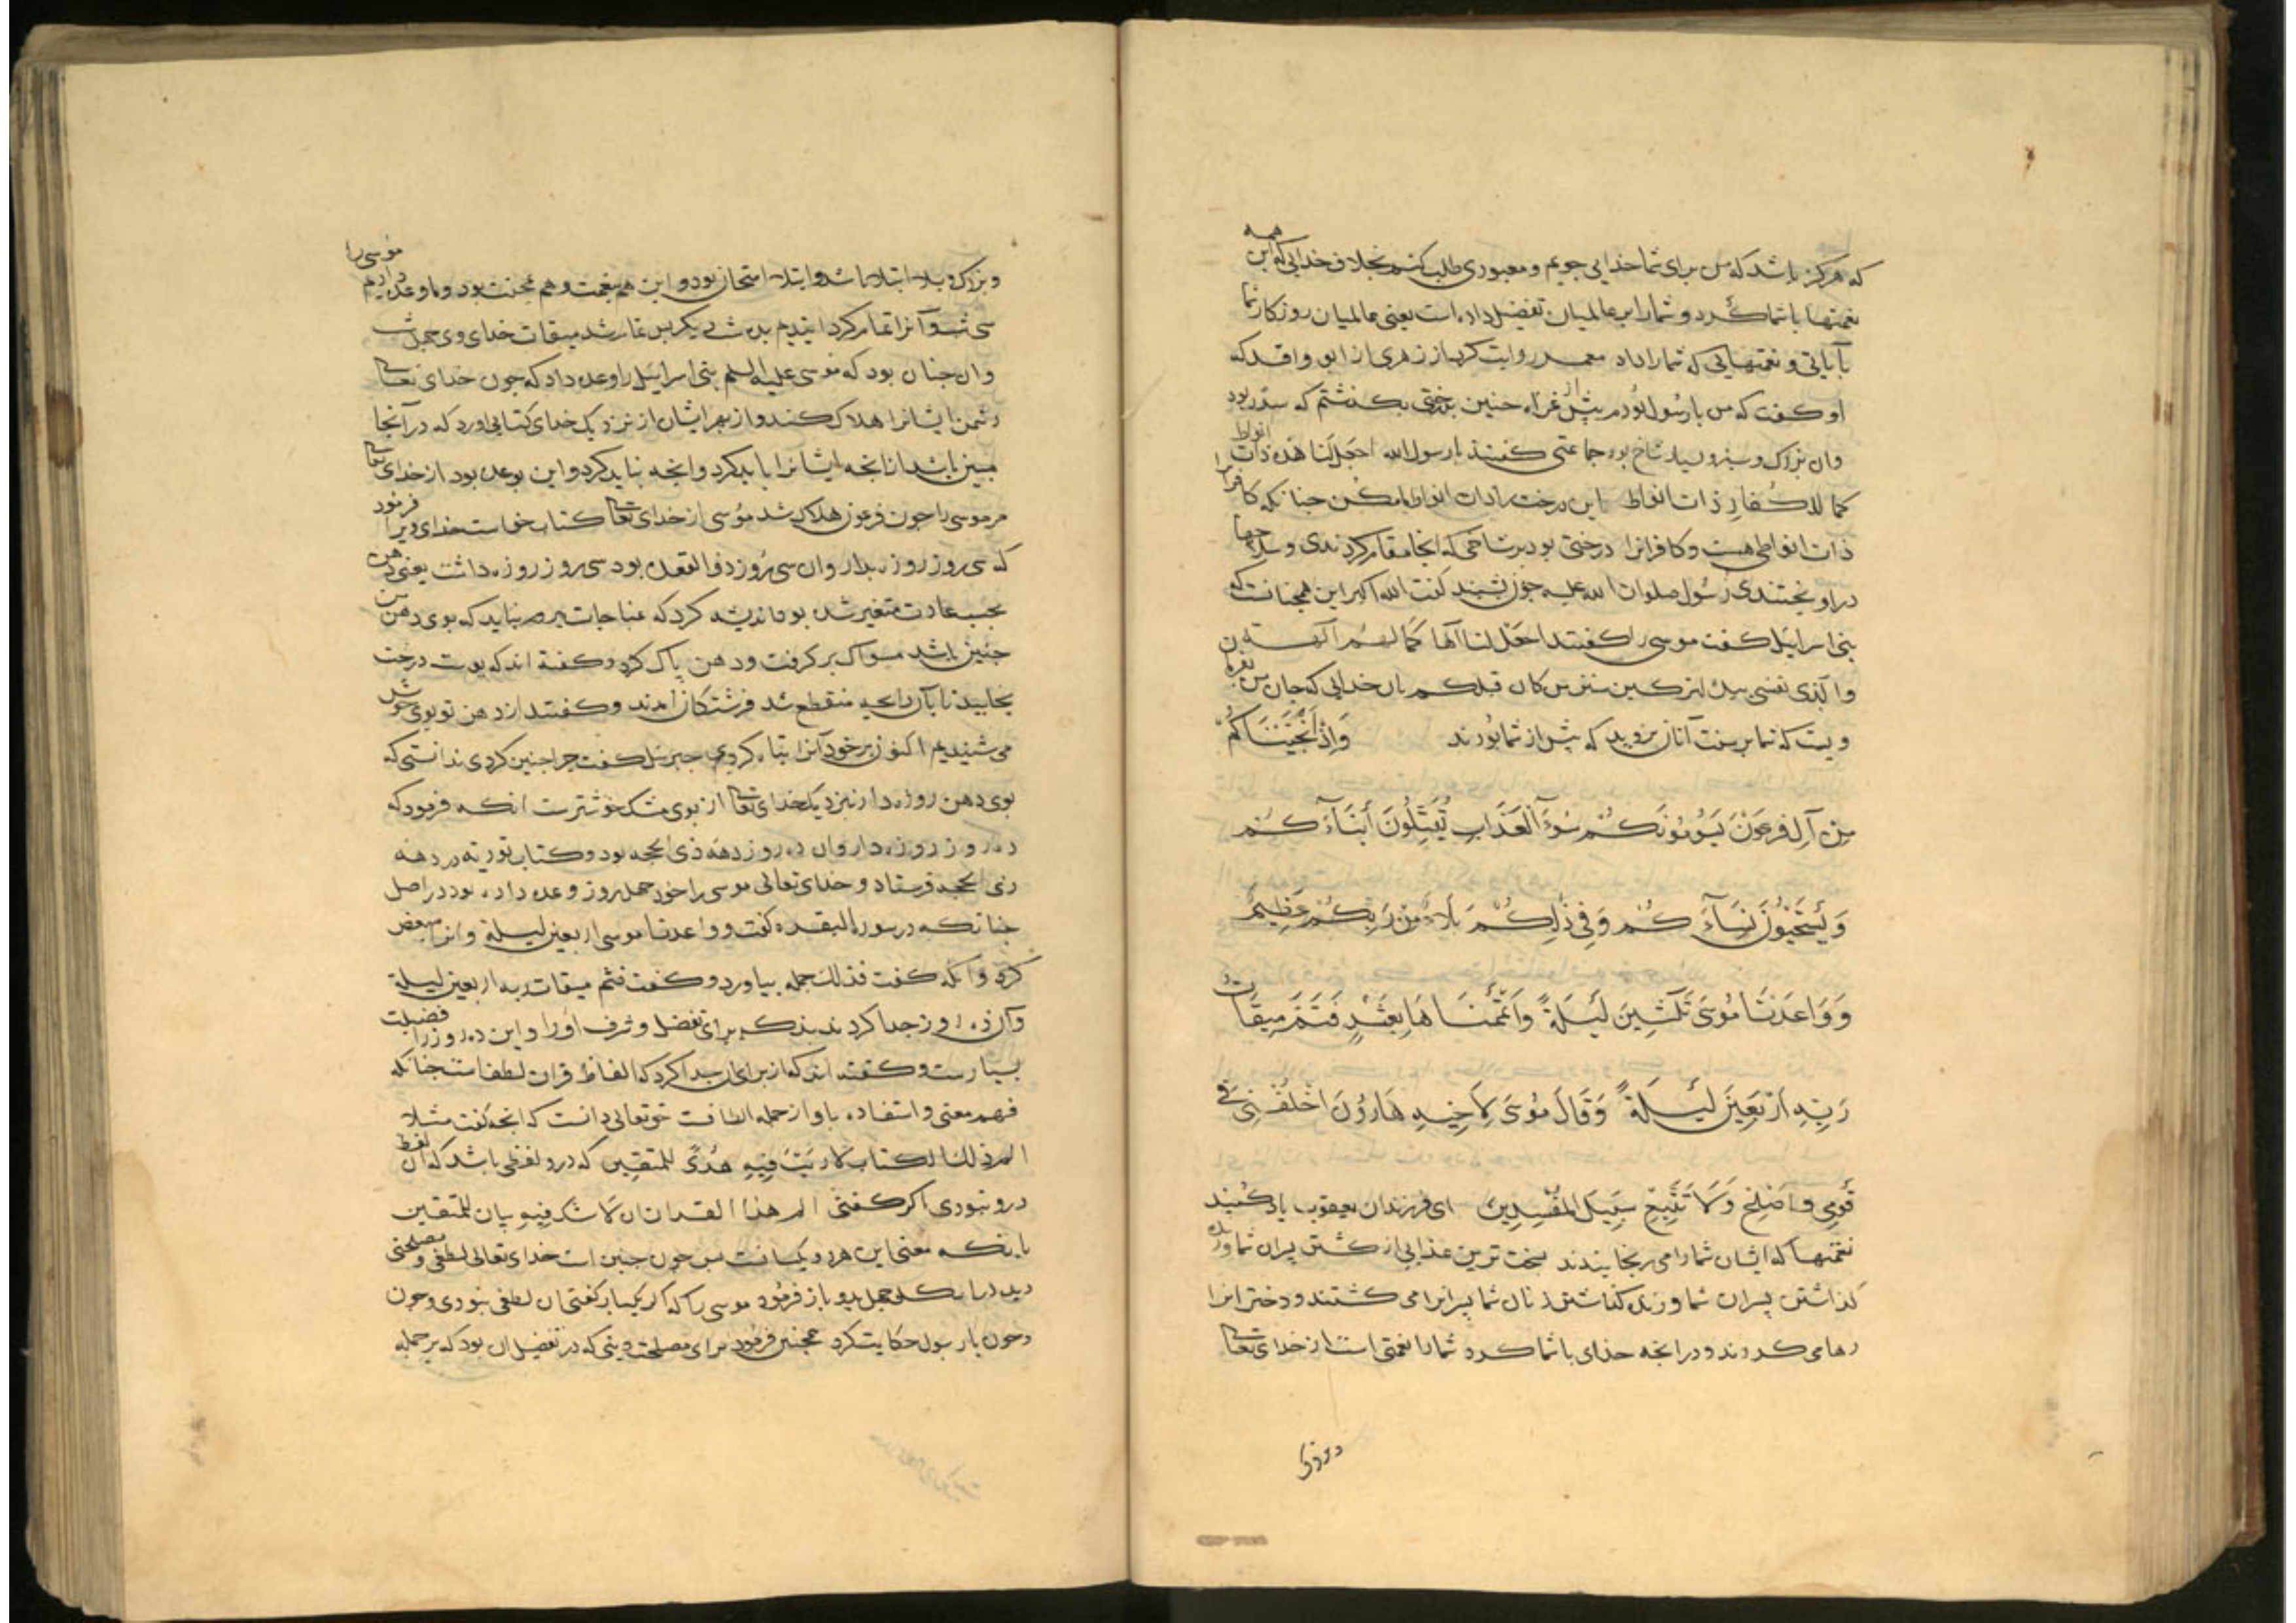 که هرگز باشد که من برای شما خدایی جویم و معبودی طلب کنم بخلاف خدایی که این همه
نعمتها با شما کرد و شما را بر عالمیان تفضیل داده است یعنی عالمیان روزکار شما
بآیاتی و نعمتهایی که شما را داد معمر روایت کرد از زهری از ابو واقد که
او کفت که من با رسول بودم پیش از غزاء حنین بدرختی بکذشتم که سدر بود
وان بزرک و سبز و بسیار شاخ بود جماعتی کفتند یا رسول الله اجعل لنا هذه ذات انواط
کما للکفار ذات انواط این درخت را ذات انواط ما کن چنانکه کافرانرا
ذات انواطی هست و کافرانرا درختی بود بر شاخی که آنجا مقام کردندی و سلاحها
در او یختندی رسول صلوات الله علیه چون بشنید کفت الله اکبر این همچنانست که
بنی اسرایئل کفت موسی را کفتند اجعل لنا آلها کما لهم آلهة بن
والذی نفسی بیده لترکبن سنن من کان قبلکم بان خدایی که جان من بفرمان
ویست که شما بر سنت آنان بروید که پیش از شما بودند وَإِذْ أَنْجَيْنَاكُمْ
مِنْ آلِ فِرْعَوْنَ يَسُومُونَكُمْ سُوءَ الْعَذَابِ يُقَتِّلُونَ أَبْنَآءَكُمْ
وَيَسْتَحْيُونَ نِسَآءَكُمْ وَفِي ذٰلِكُمْ بَلَاءٌ مِنْ رَبِّكُمْ عَظِيمٌ
وَوَاعَدْنَا مُوسَى ثَلٰثِينَ لَيْلَةً وَأَتْمَمْنَاهَا بِعَشْرٍ فَتَمَّ مِيقَاتُ
رَبِّهِ أَرْبَعِينَ لَيْلَةً وَقَالَ مُوسَى لِأَخِيهِ هَارُونَ اخْلُفْنِي فِي
قَوْمِي وَأَصْلِحْ وَلَا تَتَّبِعْ سَبِيلَ الْمُفْسِدِينَ ای فرزندان یعقوب یاد کنید
نعمتها که ایشان شما را می رنجانیدند سخت ترین عذابی از کشتن پسران شما و زنده
کذاشتن پسران شما و زنده کذاشتن زنان شما پسرانرا می کشتند و دخترانرا
رها می کردند و در آنچه خدای با شما کرد شما را نعمتی است از خدای تعالی
و بزرک و بلا ابتلا باشد و ابتلا امتحان بود و این هم نعمت و هم محنت بود و ما وعده دادیم موسی را
سی شب و آنرا تمام کردانیدیم بده شب دیکر پس تمام شد میقات خدای وی چهل شب
وان چنان بود که موسی علیه السلم بنی اسراییل را وعده داد که چون خدای تعالی
دشمن ایشانرا هلاک کند و از بهر ایشان از نزدیک خدای کتابی اورد که در آنجا
مبین باشد از آنچه ایشانرا باید کرد و آنچه نباید کرد و این بوعده بود از خدای تعالی
مر موسی را چون فرعون هلاک شد موسی از خدای تعالی کتاب خواست خدای ویرا فرمود
که سی روز روزه بدار وان سی روز ذوالقعده بود سی روز روزه داشت یعنی دهن
بحسب عادت متغیر شده بود اندیشه کرد که مناجات بر من نیاید که بوی دهن من
چنین باشد مسواک بر کرفت و دهن پاک کرد و کفته اند که پوست درخت
بخایید تا بآن رایحه منقطع شد فرشتکان آمدند و کفتند از دهن تو بوی خوش
می شنیدیم اکنون بر خود آنرا تباه کردی جبریل کفت چرا چنین کردی ندانستی که
بوی دهن روزه دار بنزدیک خدای تعالی از بوی مشک خوشترست آنکه فرمود که
ده روز روزه دار وان ده روز دهه ذی الحجه بود و کتاب توریه در دهه
ذی الحجه فرستاد و خدای تعالی موسی را خود چهل روز وعده داده بود در اصل
چنانکه در سورة البقره کفت و واعدنا موسی اربعین لیلة وانرا مبعض
کرد و آنکه کفت فذلک جمله بیاورد و کفت فتم میقات ربه اربعین لیلة
وآن ده روز جدا کردند بذکر برای تفضل و شرف او را و این ده روز را فضیلت
بسیارست و کفته اند که از برای ان جدا کرد که الفاظ قران لطف است چنانکه
فهم معنی و استفاده باو از جمله الطافست حق تعالی دانست که آنچه کفت مثلا
الم ذلک الکتاب لا ریب فیه هدی للمتقین که درو لفظی باشد که آن لفظ
درو نبودی اکر کفتی الم هذا القران لا شک فیه بیان للمتقین
با آنکه معنی این هر دو یکسانست پس چون چنین است خدای تعالی لطفی و مصلحتی
دید در آنکه چهل بدو باز فرمود موسی را که اکر یکبار کفتی ان لطفی نبودی و چون
و چون با رسول حکایت کرد همچنین فرمود برای مصلحت دینی که در تفضیل ان بود که بر جمله